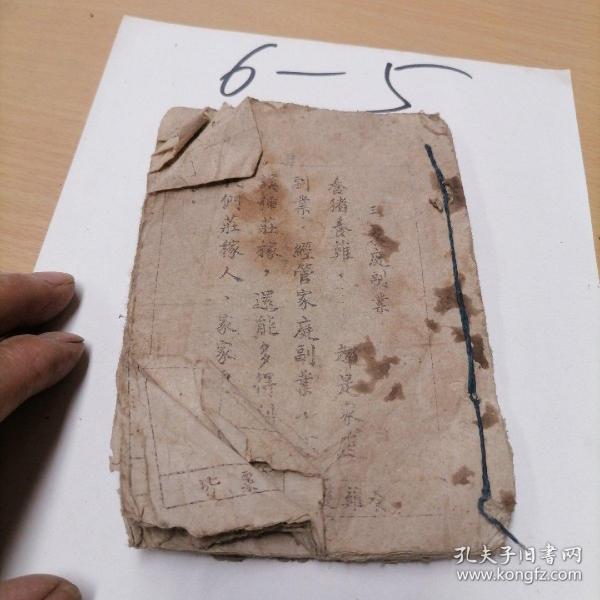 6—5
三 家庭副業
養猪養雞、 都是家庭
副業.經管家庭副業、
莊稼,還能多得利
們莊稼人、家家
雞
孔夫子旧書网
www.kongfz.com